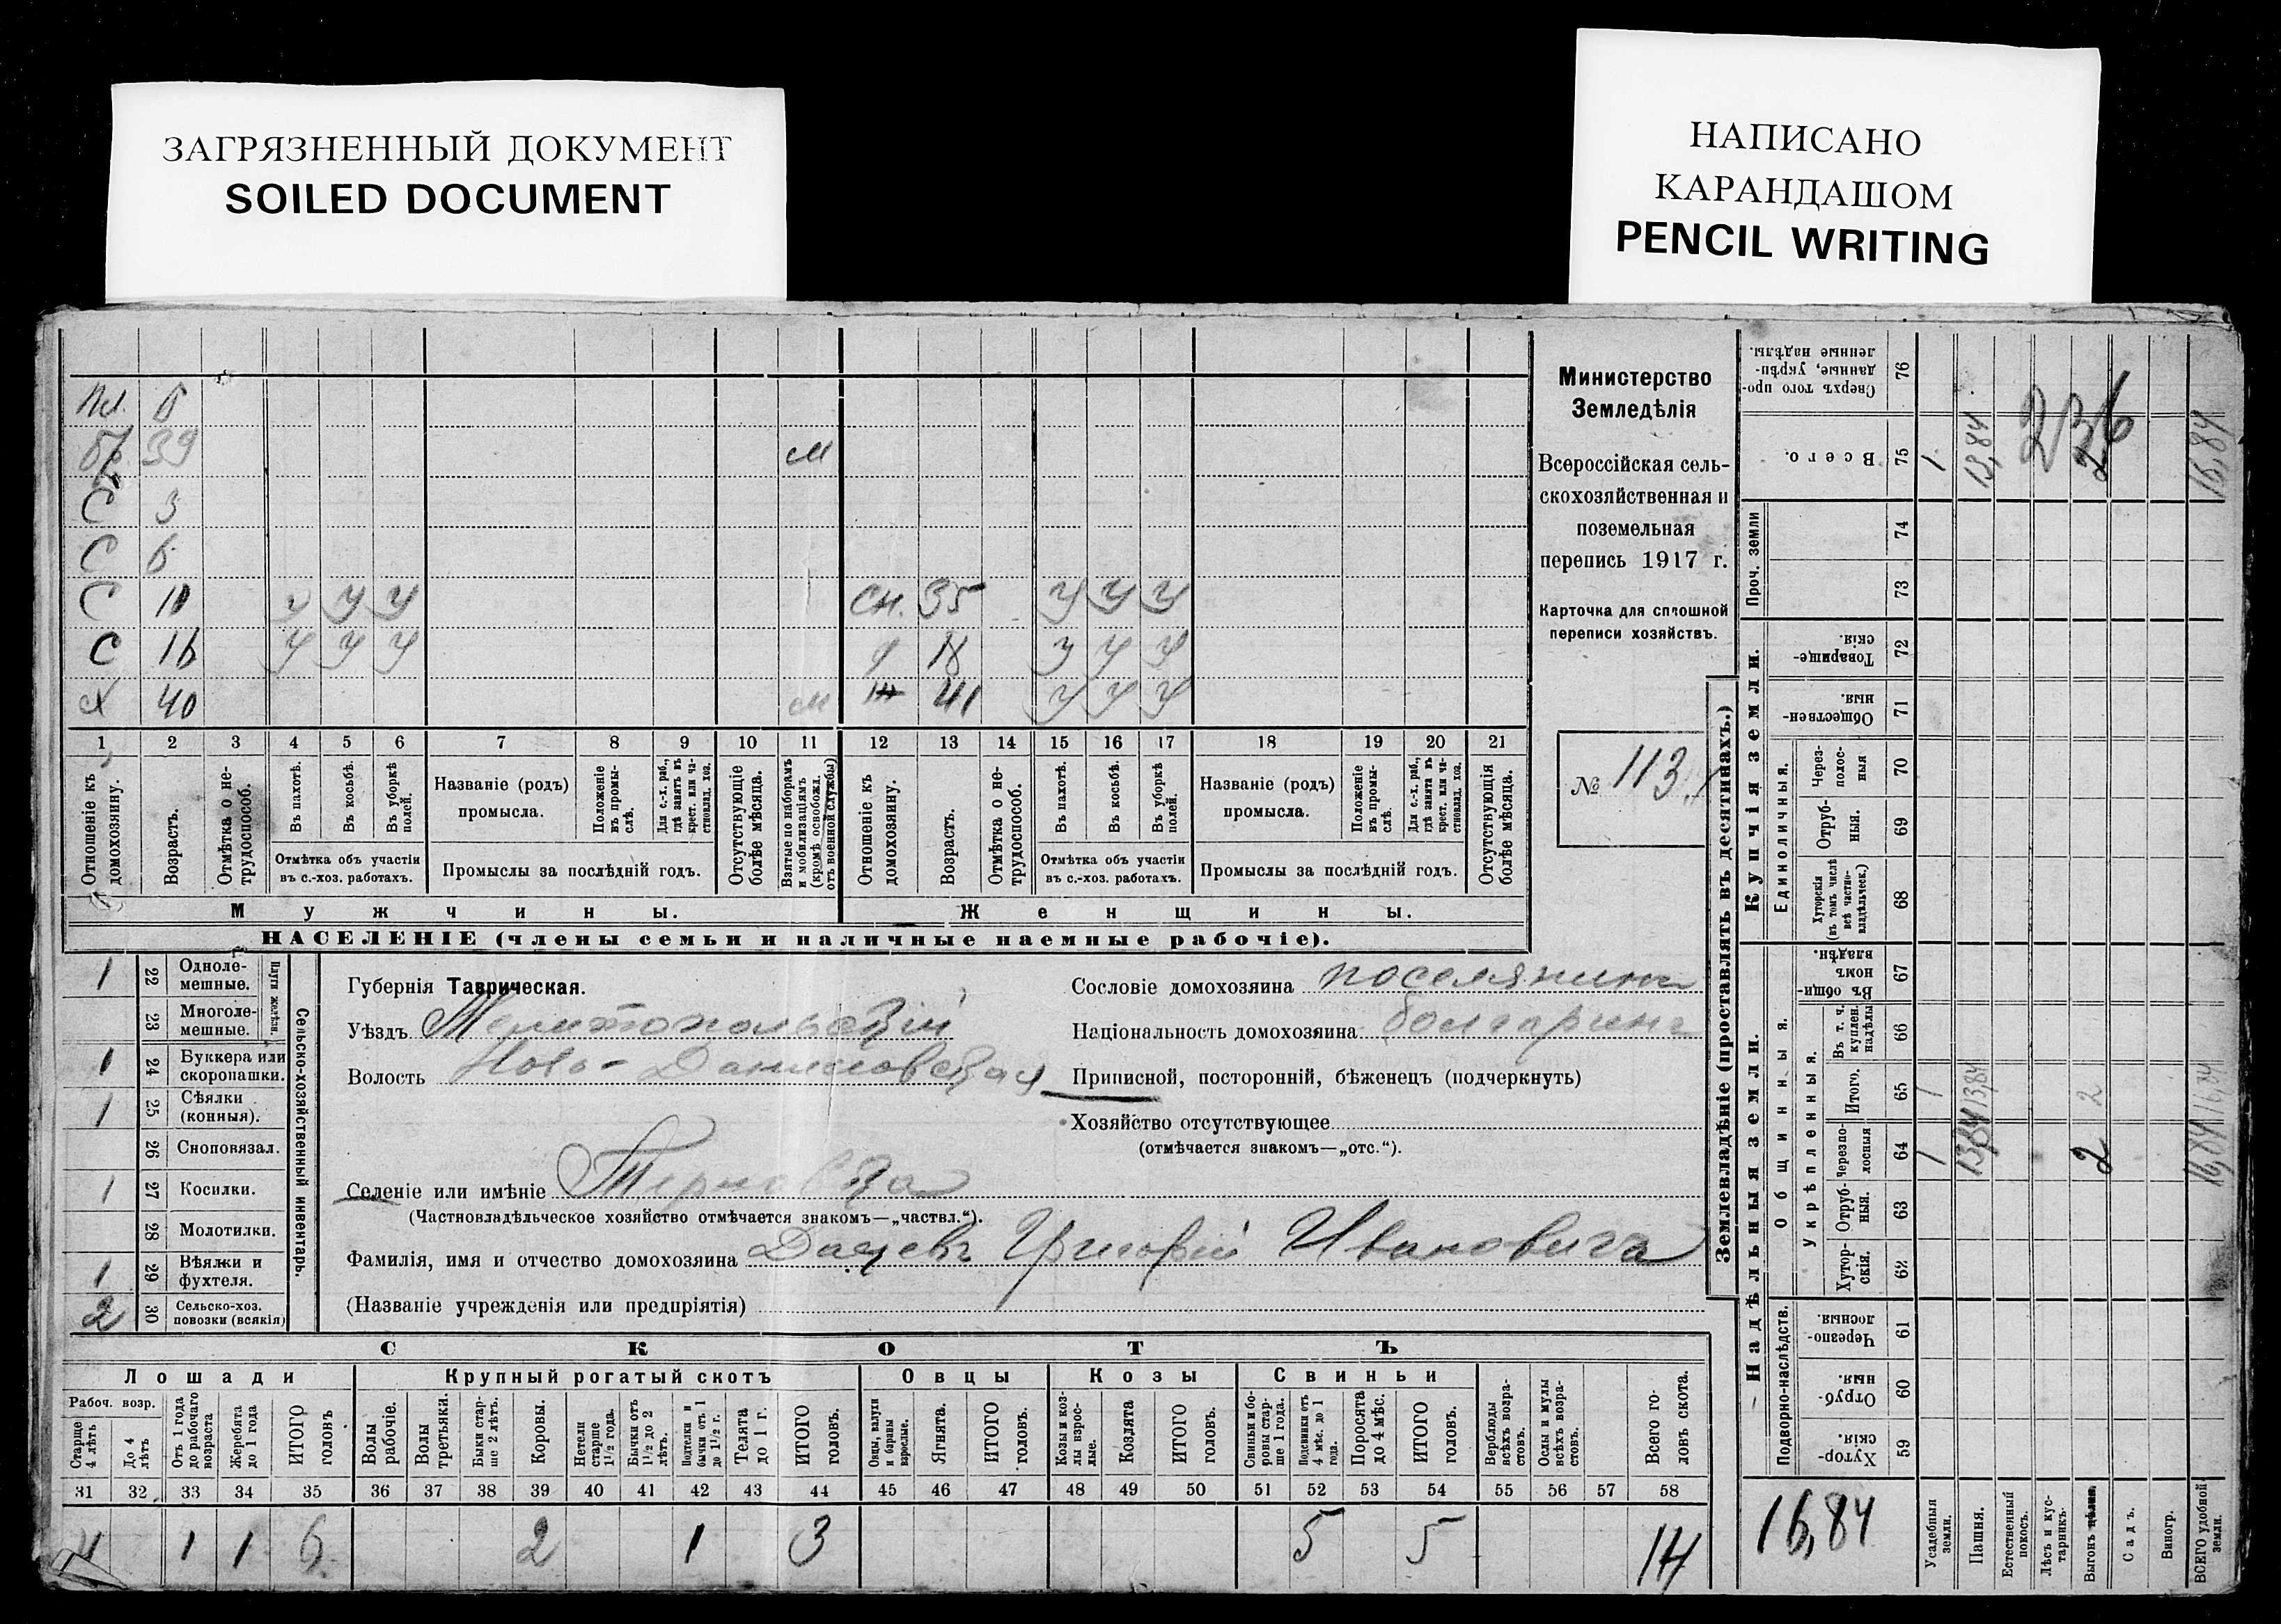 ЗАГРЯЗНЕННЫЙ ДОКУМЕНТ
SOILED DOCUMENT
НАПИСАНО
КАРАНДАШОМ
PENCIL WRITING
39 м
С 3
С 6
С 10 у у у сн. 35 у у у
С 16 у у у 18 у у у
Х 40 м 41 у у у
1 2 3 4 5 6 7 8 9 10 11 12 13 14 15 16 17 18 19 20 21
Отношеніе къ домохозяину.
Возрастъ.
Отмѣтка о нетрудоспособ.
Въ пахотѣ.
Въ косьбѣ.
Въ уборкѣ полей.
Отмѣтка объ участіи въ с.-хоз. работахъ.
Названіе (родъ) промысла.
Положеніе въ промыслѣ.
Для с.-х. раб., гдѣ занятъ въ крест. или частновлад. хоз.
Промыслы за послѣдній годъ.
Отсутствующіе болѣе мѣсяца.
Взятые по наборамъ и мобилизаціямъ (кромѣ освобожд. отъ военной службы)
Отношеніе къ домохозяину.
Возрастъ.
Отмѣтка о нетрудоспособ.
Въ пахотѣ.
Въ косьбѣ.
Въ уборкѣ полей.
Отмѣтка объ участіи въ с.-хоз. работахъ.
Названіе (родъ) промысла.
Положеніе въ промыслѣ.
Для с.-х. раб., гдѣ занята въ крест. или частновлад. хоз.
Промыслы за послѣдній годъ.
Отсутствующія болѣе мѣсяца.
Мужчины. Женщины.
НАСЕЛЕНІЕ (члены семьи и наличные наемные рабочіе).
Министерство
Земледѣлія
Всероссійская сель-
скохозяйственная и
поземельная
перепись 1917 г.
Карточка для сплошной
переписи хозяйствъ.
№ 113
1 22 Одноле-мешные.
23 Многоле-мешные.
Плуги желѣзн.
1 24 Буккера или скоропашки.
1 25 Сѣялки (конныя).
26 Сноповязал.
1 27 Косилки.
28 Молотилки.
1 29 Вѣялки и фухтеля.
2 30 Сельско-хоз. повозки (всякія)
Сельско-хозяйственный инвентарь.
Губернія Таврическая.
Уѣздъ Мелитопольскій
Волость Ново-Даниловская
Селеніе или имѣніе Терновка
(Частновладѣльческое хозяйство отмѣчается знакомъ—„частвл.“).
Фамилія, имя и отчество домохозяина Григорій Ивановичъ
(Названіе учрежденія или предпріятія)
Сословіе домохозяина поселянинъ
Національность домохозяина болгаринъ
Приписной, посторонній, бѣженецъ (подчеркнуть)
Хозяйство отсутствующее
(отмѣчается знакомъ—„отс.“).
СКОТЪ
Лошади Крупный рогатый скотъ Овцы Козы Свиньи
Рабоч. возр.
Старше 4 лѣтъ
До 4 лѣтъ
Отъ 1 года до рабочаго возраста
Жеребята до 1 года
ИТОГО головъ
Волы рабочіе.
Волы третьяки.
Быки старше 2 лѣтъ.
Коровы.
Нетели старше 1½ года.
Бычки отъ 1½ до 2 лѣтъ.
Подтелки и бычки отъ 1 до 1½ г.
Телята до 1 г.
ИТОГО головъ.
Овцы, валухи и бараны взрослые.
Ягнята.
ИТОГО головъ.
Козы и козлы взрослые.
Козлята
ИТОГО головъ.
Свиньи и боровы старше 1 года.
Подсвинки отъ 4 мѣс. до 1 года.
Поросята до 4 мѣс.
ИТОГО головъ.
Верблюды всѣхъ возрастовъ.
Ослы и мулы всѣхъ возрастовъ.
Всего головъ скота.
31 32 33 34 35 36 37 38 39 40 41 42 43 44 45 46 47 48 49 50 51 52 53 54 55 56 57 58
4 1 1 6 2 1 3 5 5 14
Землевладѣніе (проставлять въ десятинахъ.)
Купчія земли.
Надѣльныя земли.
Проч. земли
Единоличныя.
Общинныя.
Укрѣпленныя.
Подворно-наслѣдств.
Сверхъ того проданные, укрѣпленные надѣлы. 76
Всего. 75 1 13,84 2 16,84
74
73
Товарищескія. 72
Общественныя. 71
Черезполосныя 70
Отрубныя. 69
Хуторскія (въ томъ числѣ всѣ частновладѣльческ.) 68
Въ общинномъ владѣн. 67
Въ т. ч. куплен. надѣлы 66
Итого. 65 1 13,84 2 16,84
Черезполосныя 64 1 13,84 2 16,84
Отрубныя. 63
Хуторскія. 62
Черезполосныя. 61
Отрубныя. 60
Хуторскія. 59
236
16,84
Усадебныя земли.
Пашня.
Естественный покосъ.
Лѣсъ и кустарникъ.
Выгонъ
Садъ.
Виногр.
ВСЕГО удобной земли.